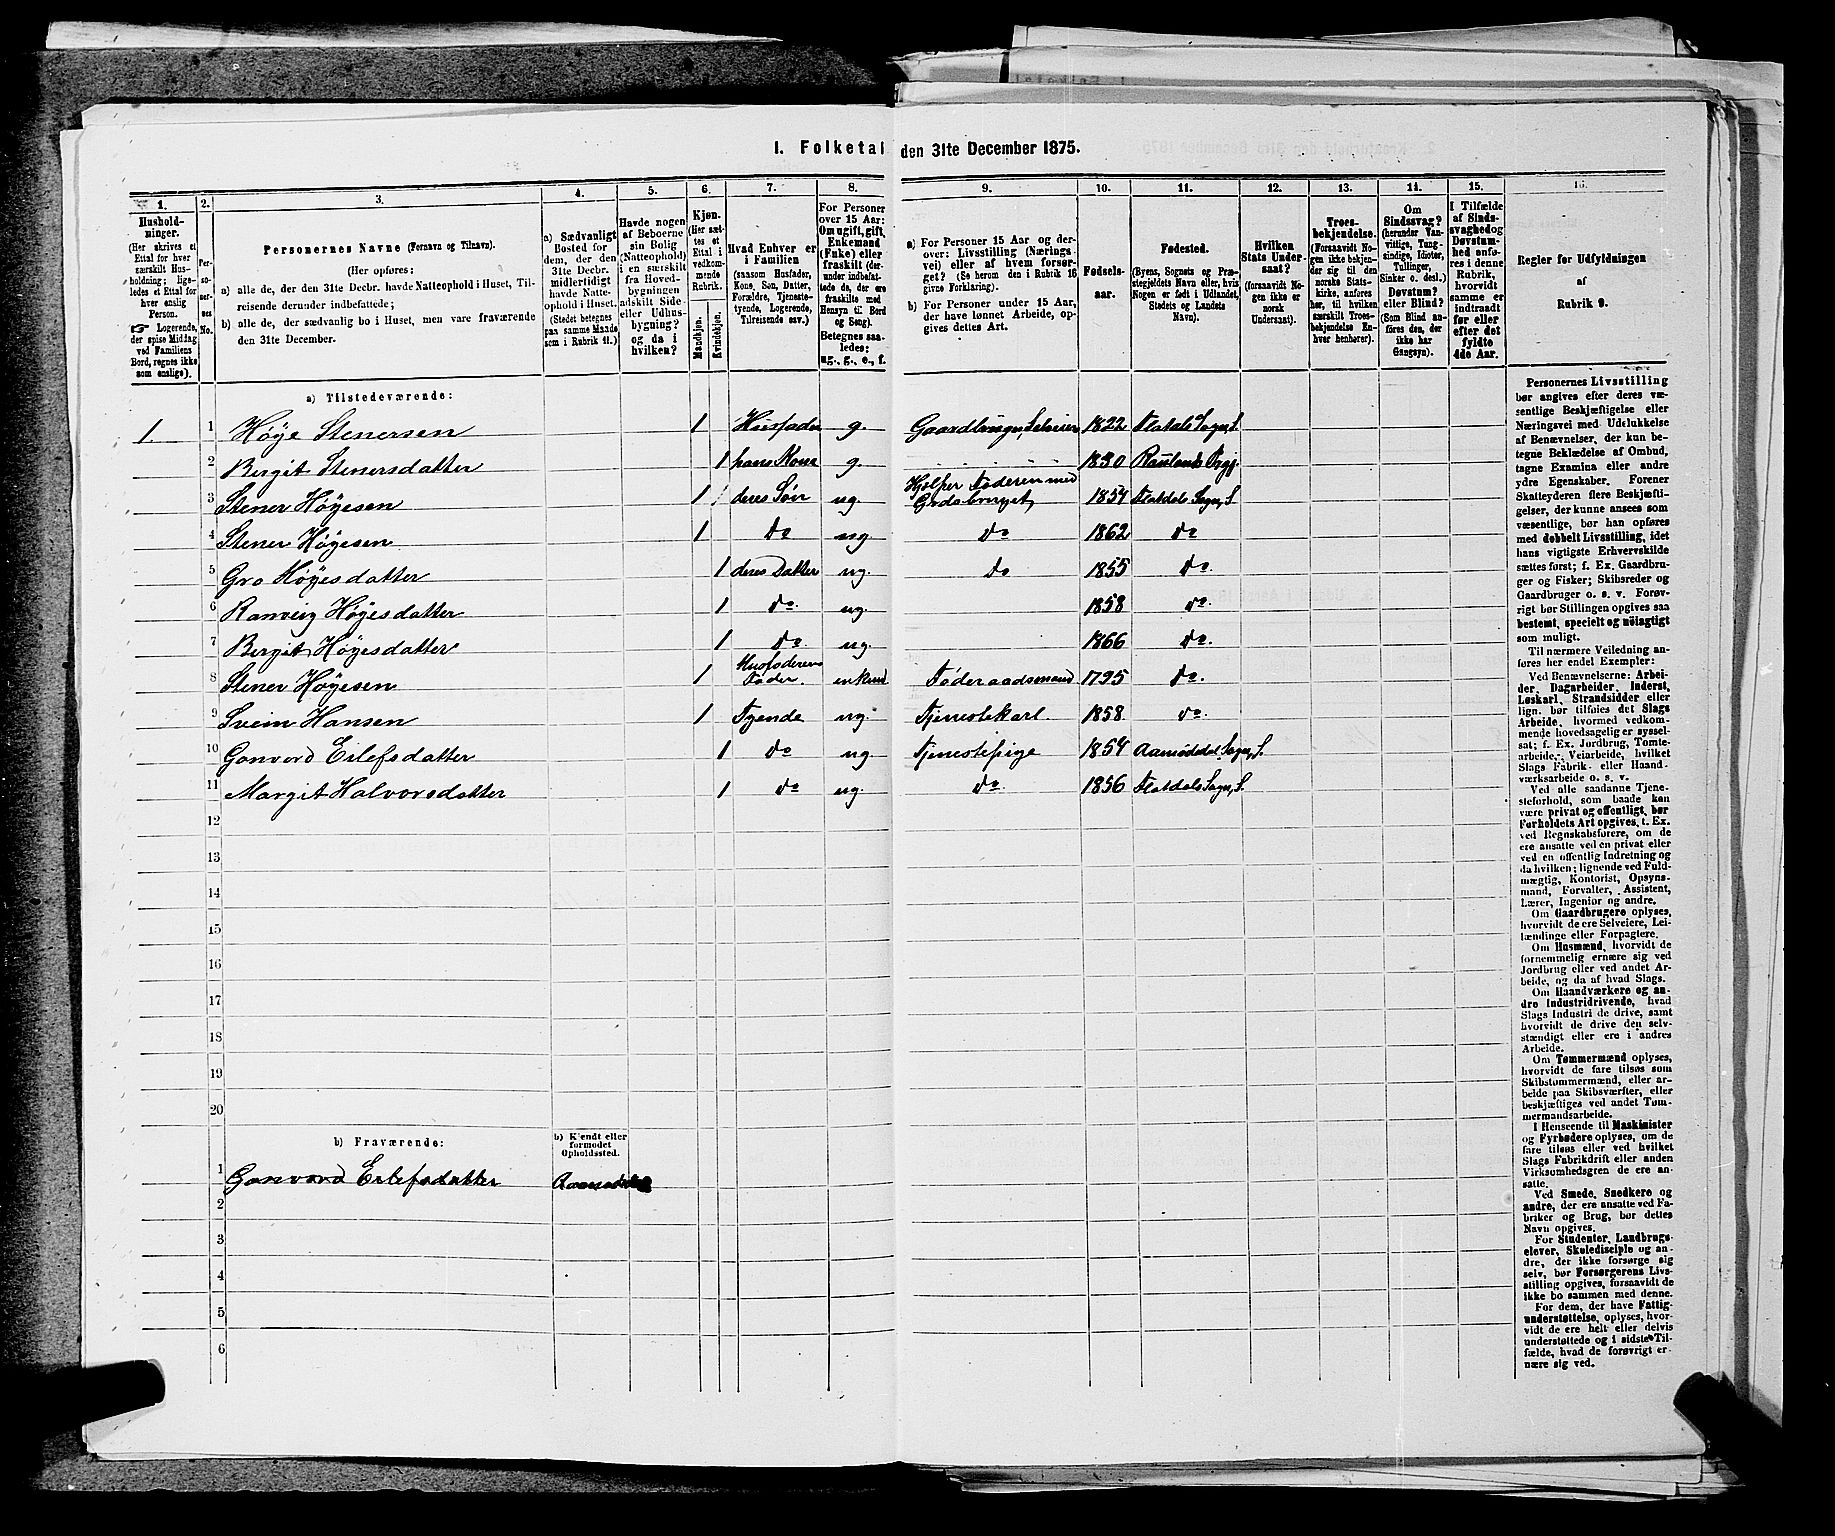 1. Folketal den 31te December 1875.
1.
2.
3.
4.
5.
6.
7.
8.
9.
10.
11.
12.
13.
14.
15.
16.
Hushold-
ninger.
(Her skrives et
Ettal for hver
særskilt Hus-
holdning; lige-
ledes et Ettal for
hver enslig
Person.
☞ Logerende,
der spise Middag
ved Familiens
Bord, regnes ikke
som enslige).
Per-
so-
ner-
nes
No.
Personernes Navne (Fornavn og Tilnavn).
(Her opføres:
a) alle de, der den 31te Decbr. havde Natteophold i Huset, Til-
reisende derunder indbefattede;
b) alle de, der sædvanlig bo i Huset, men vare fraværende
den 31te December.
a) Sædvanligt
Bosted for
dem, der den
31te Decbr.
midlertidigt
havde Natte-
ophold i Huset.
(Stedet betegnes
paa samme Maade
som i Rubrik 11.)
Havde nogen
af Beboerne
sin Bolig
(Natteophold)
i en særskilt
fra Hoved-
bygningen
adskilt Side-
eller Udhus-
bygning?
og da i
hvilken?
Kjøn.
(Her sæt-
tes et
Ettal i
vedkom-
mende
Rubrik.
Mandkjøn.
Kvindekjøn.
Hvad Enhver er
i Familien
(saasom Husfader,
Kone, Søn, Datter,
Forældre, Tjeneste-
tyende, Logerende,
Tilreisende osv.)
For Personer
over 15 Aar:
Om ugift, gift,
Enkemand
(Enke) eller
fraskilt (der-
under indbefat-
tede de, der ere
fraskilte med
Hensyn til Bord
og Seng).
Betegnes saa-
ledes:
ug., g., e., f.
a) For Personer 15 Aar og der-
over: Livsstilling (Nærings-
vei) eller af hvem forsør-
get? (Se herom den i Rubrik 16
givne Forklaring).
b) For Personer under 15 Aar,
der have lønnet Arbeide, op-
gives dettes Art.
Fødsels-
aar.
Fødested.
(Byens, Sognets og Præ-
stegjeldets Navn eller, hvis
Nogen er født i Udlandet,
Stedets og Landets
Navn).
Hvilken
Stats Under-
saat?
(forsaavidt No-
gen ikke er
norsk
Undersaat).
Troes-
bekjendelse.
(Forsaavidt No-
gen ikke bekjen-
der sig til den
norske Stats-
kirke, anføres
her, til hvilken
særskilt Troes-
bekjendelse En-
hver henhører).
Om
Sindssvag?
(herunder Van-
vittige, Tung-
sindige, Idioter,
Tullinger,
Sinker o. desl.)
Døvstum?
eller Blind?
(Som Blind an-
føres den, der
ikke har
Gangsyn).
I Tilfælde
af Sinds-
svaghed og
Døvstum-
hed anfø-
res i denne
Rubrik,
hvorvidt
samme er
indtraadt
før eller
efter det
fyldte
4de Aar.
Regler for Udfyldningen
af
Rubrik 9.
a) Tilstedeværende:
1. 1 Høye Stenersen 1 Husfader g. Gaardbruger, Selveier 1822 Flatdals Sogn, S.
2 Birgit Stenersdatter 1 hans Kone g. 1830 Raulands
3 Stener Høyesen 1 deres Søn ug Hjelper Faderen med Grdsbruget, 1854 Flatdals Sogn, S.
4 Stener Høyesen 1 Do ug. Do 1862 Do
5 Gro Høyesdatter 1 deres Datter ug. Do 1855 Do.
6 Ranveig Høyesdatter 1 Do. ug. 1858 Do.
7 Birgit Høyesdatter 1 Do. ug. 1866 Do.
8 Stener Høyesen 1 Husfaderens Fader. enkmd Føderaadsmand 1795 Do.
9 Svein Hansen 1 Tyende ug. Tjenestekarl. 1858 Do.
10 Gonvord Eilefsdatter 1 Do ug Tjenestepige 1854 Aamotdals Sogn, S.
11 Margit Halvorsdatter 1 Do ug. Do. 1856 Flatdals Sogn, S.
12
13
14
15
16
17
18
19
20
b) Fraværende:
b) Kjendt eller
formodet
Opholdssted.
1 Gonvord Eilefsdatter
2
3
4
5
6
Personernes Livsstilling
bør angives efter deres væ-
sentlige Beskjæftigelse eller
Næringsvei med Udelukkelse
af Benævnelser, der kun be-
tegne Beklædelse af Ombud,
tagne Examina eller andre
ydre Egenskaber. Forener
Skatteyderen flere Beskjæfti-
gelser, der kunne ansees som
væsentlige, bør han opføres
med dobbelt Livsstilling, idet
hans vigtigste Erhvervskilde
sættes først; f. Ex. Gaardbru-
ger og Fisker; Skibsreder og
Gaardbruger o. s. v. Forøv-
rigt bør Stillingen opgives saa
bestemt, specielt og nøiagtigt
som muligt.
Til nærmere Veiledning an-
føres her endel Exempler:
Ved Benævnelserne: Arbei-
der, Dagarbeider, Inderst,
Løskarl, Strandsidder eller
lign. bør tilføies det Slags
Arbeide, hvormed vedkom-
mende hovedsagelig er syssel-
sat; f. Ex. Jordbrug, Tomte-
arbeide, Veiarbeide, hvilket
Slags Fabrik- eller Haand-
værksarbeide o. s. v.
Ved alle saadanne Tjene-
steforhold, som baade kan
være privat og offentligt, bør
Forholdets Art opgives, t. Ex.
ved Regnskabsførere, om de
ere ansatte ved en privat eller
ved en offentlig Indretning og
da hvilken; lignende ved Fuld-
mægtig, Kontorist, Opsyns-
mand, Forvalter, Assistent,
Lærer, Ingeniør og andre.
Om Gaardbrugere oplyses,
hvorvidt de ere Selveiere, Lei-
lændinge eller Forpagtere.
Om Husmænd, hvorvidt de
fornemmelig ernære sig ved
Jordbrug eller ved andet Ar-
beide, og da af hvad Slags.
Om Haandværkere og an-
dre Industridrivende, hvad
Slags Industri de drive, samt
hvorvidt de drive den selv-
stændigt eller ere i andres
Arbeide.
Om Tømmermænd oplyses,
hvorvidt de fare tilsøs som
Skibstømmermænd, eller ar-
beide paa Skibsværfter, eller
beskjæftiges ved andet Tøm-
mermandsarbeide.
I Henseende til Maskinister
og Fyrbødere oplyses, om de
fare tilsøs eller ved hvilket
Slags Fabrikdrift eller anden
Virksomhedsgren de ere an-
satte.
Ved Smede, Snedkere og
andre, der ere ansatte ved Fa-
briker og Brug, bør dettes
Navn opgives.
For Studenter, Landbrugs-
elever, Skoledisciple og an-
dre, der ikke forsørge sig
selv, bør Forsørgerens Livs-
stilling opgives, forsaavidt de
ikke bo sammen med denne.
For dem, der have Fattig-
understøttelse, oplyses, hvor-
vidt de ere helt eller delvis
understøttede og i sidste Til-
fælde, hvad de forøvrigt er-
nære sig ved.